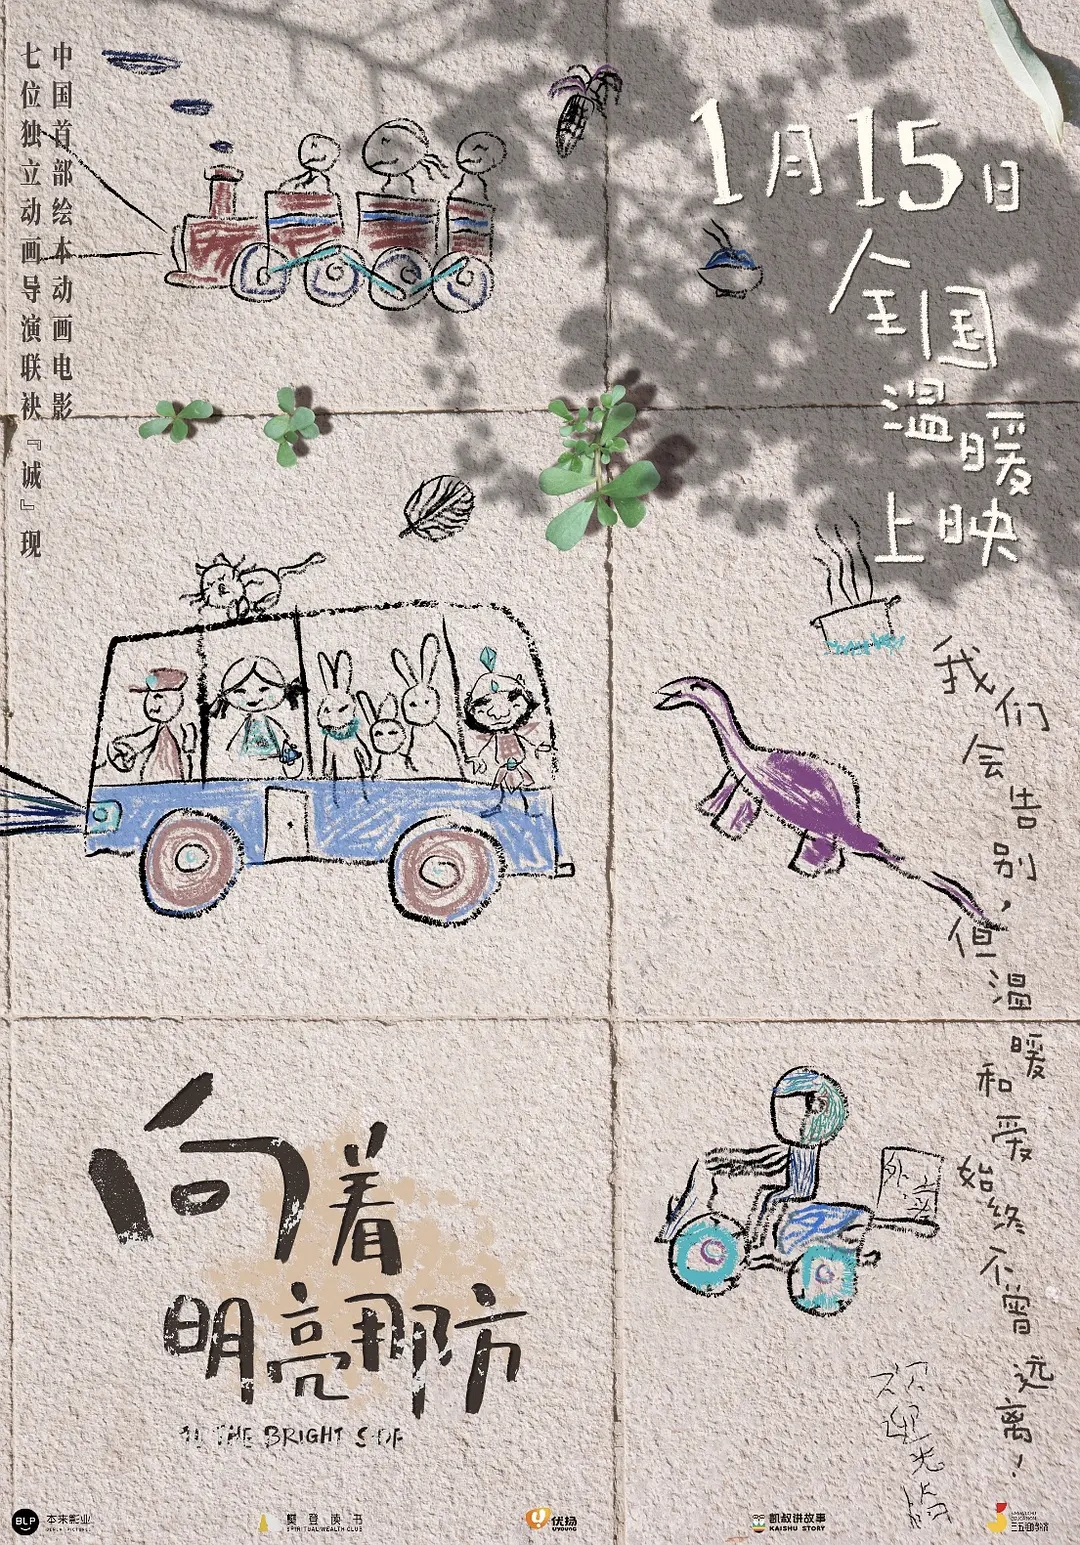 中国首部绘本动画电影
七位独立动画导演联袂『诚』现
1月15日
全国
温暖
上映
我们会告别，
但温暖和爱始终不曾远离！
外卖
向着
明亮那方
TO THE BRIGHT SIDE
欢迎光临
BLP
本来影业
樊登映书
SPIRITUAL WEALTH CLUB
优扬
UYOUNG
凯叔讲故事
KAISHU STORY